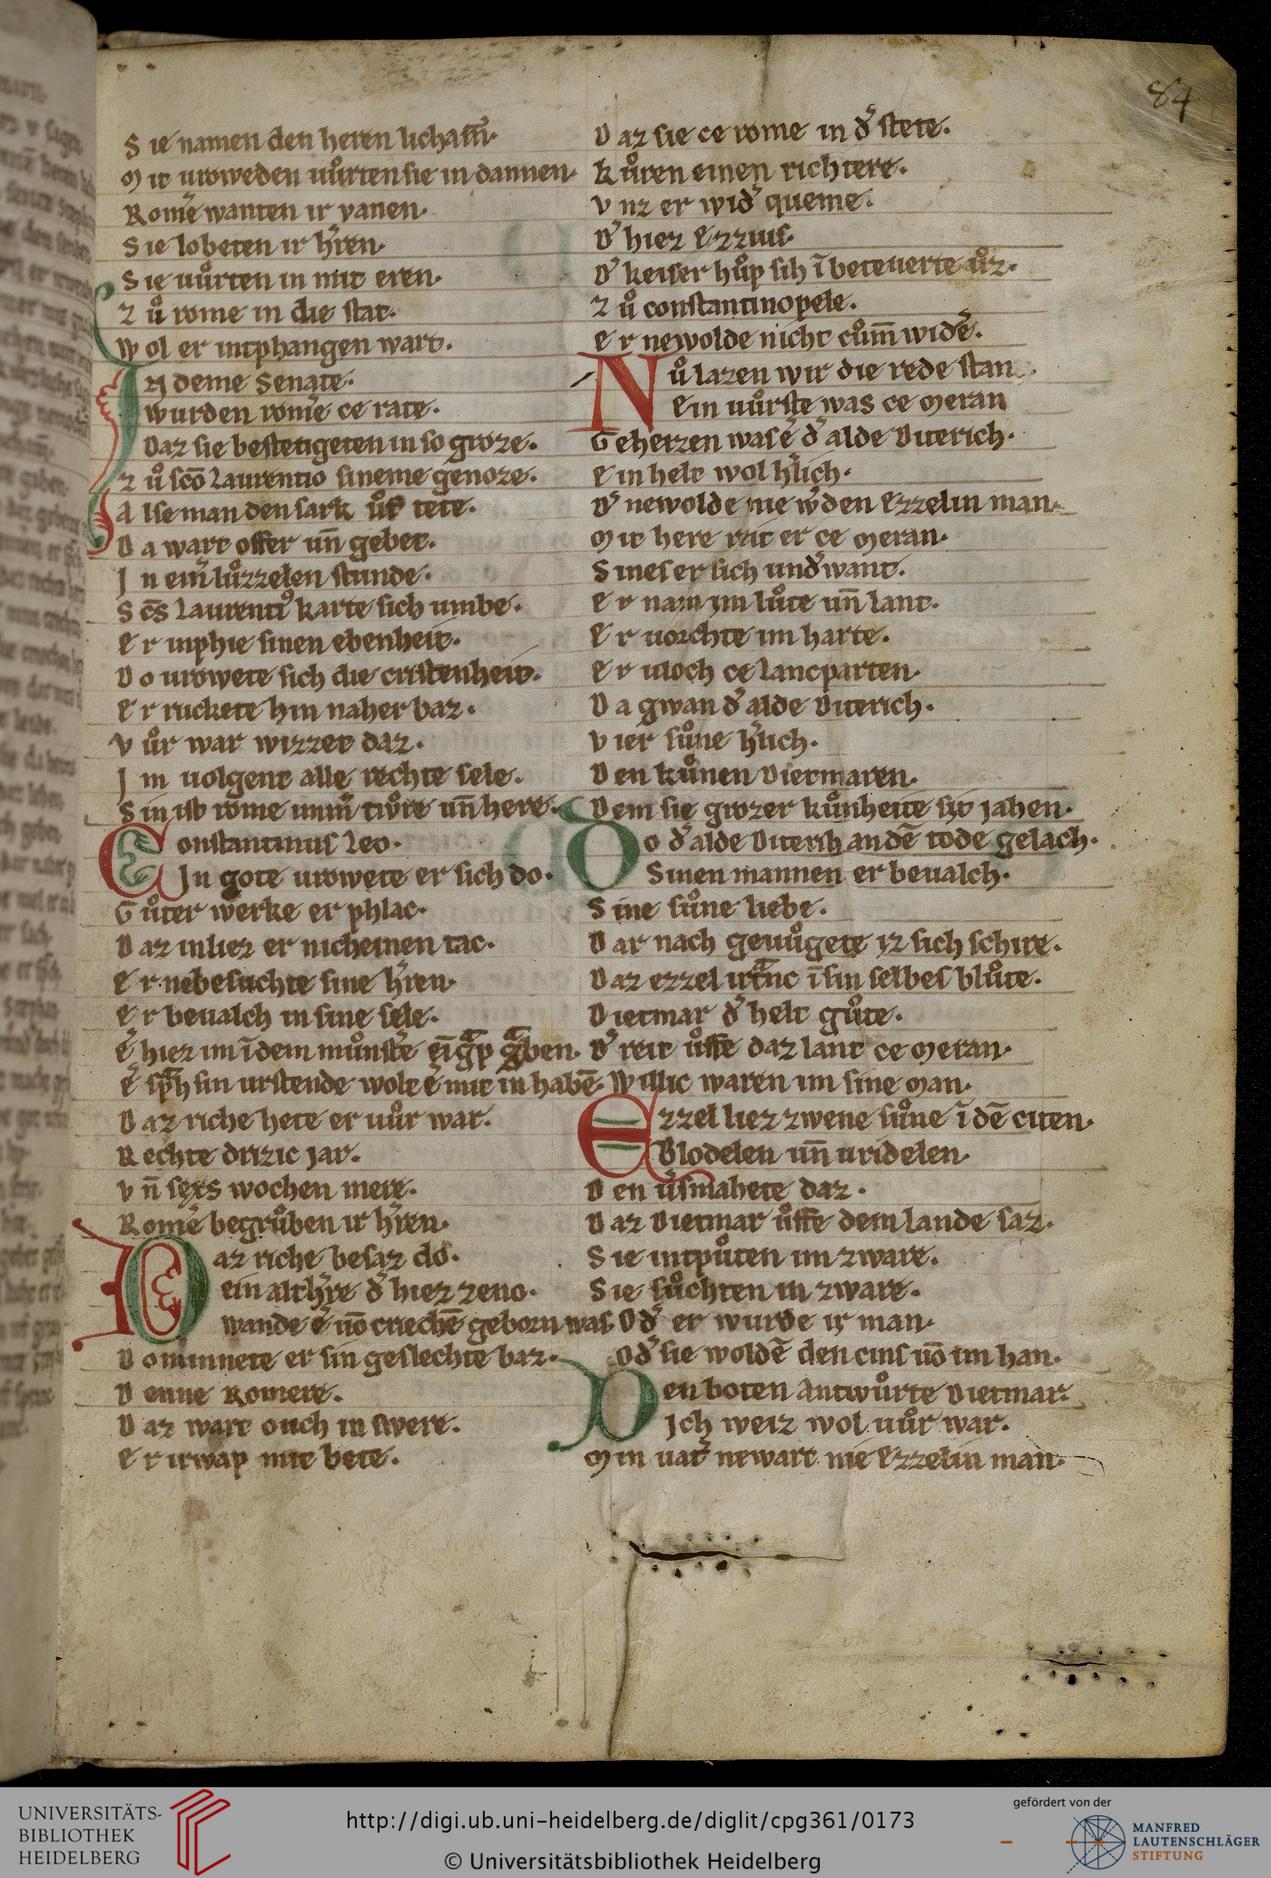 84
Sie namen den heren licham̄.
Mit vroweden vůrten sie in dannen.
Rom̾e wanten ir vanen.
Sie lobeten ir h̾ren.
Sie vůrten in mit eren.
Zů rome in die stat.
Wol er intphangen wart.
In deme Senate.
wurden rom̾e ce rate.
Daz sie bestetigeten in so groze.
Zů sc̄o Laurentio sineme genoze.
Alse man den sark ůf tete.
Da wart offer un̄ gebet.
In ein̾ luͦzzelen stunde.
Sc̄s Laurenti᷒ karte sich umbe.
Er inphie sinen ebenheit.
Do vrowete sich die cristenheit.
Er ruckete hin naher baz.
Vůr war wizzet daz.
Im volgent alle rechte sele.
Sin ist rome imm̾ tiv̊re un̄ here.
Constantinus Leo.
In gote vrowete er sich do.
Gůter werke er phlac.
Daz inliez er nicheinen tac.
Er nebesuchte sine h̾ren.
Er bevalch in sine sele.
E̾ hiez im ī dem můnst̾e ein gͣp gͣben.
E̾ sp̾ch sin urstende wolt e̾ mit in habē.
Daz riche hete er vůr war.
Rechte drizic jar.
Vn̄ sexs wochen mere.
Rom̾e begrůben ir h̾ren.
Daz riche besaz do.
ein alth̾re d̾ hiez zeno.
wande e̾ vō criechē geborn was.
Do minnete er sin geslechte baz.
Denne Romere.
Daz wart ouch in swere.
Er irwap mit bete.
Daz sie ce rome in d̾ stete.
Kůren einen richtere.
Vnz er wid̾ queme.
D̾ hiez Ezzius.
D̾ keiser hůp sih ī beteverte ůz.
Zů constantinopele.
er newolde nicht cům̄ wid̾e.
Nů lazen wir die rede stan.
Ein vůrste was ce Meran
Geheizen was e̾ d̾ alde Diterich.
Ein helt wol h̾lich.
D̾ newolde nie w̾den Ezzelin man.
Mit here reit er ce Meran.
Sines er sich und̾want.
Er nam im lůte un̄ lant.
Er vorchte im harte.
Er vloch ce lancparten.
Da gwan d̾ alde Diterich.
Vier sůne h̾lich.
Den kůnen Dietmaren.
Dem sie grozer kůnheite sit jahen.
Do d̾ alde Diterich an dē tode gelach.
Sinen mannen er bevalch.
Sine sůne liebe.
Dar nach gevůgete iz sich schire.
Daz ezzel irtͣnc ī sin selbes blůte.
Dietmar d̾ helt gůte.
D̾ reit ůffe daz lant ce Meran.
Willic waren im sine man.
Ezzel liez zwene sůne ī dē citen.
Blodelen un̄ vridelen.
Den v̾smahete daz.
Daz Dietmar ůffe dem lande saz.
Sie intpůten im zware.
Sie sůchten in zware.
Od̾ er wurde ir man.
Od̾ sie woldē den cins vō im han.
Den boten Antwůrte Dietmar.
Ich weiz wol vůr war.
Min vat̾ newart nie Ezzelin man.
UNIVERSITÄTS-
BIBLIOTHEK
HEIDELBERG
http://digi.ub.uni-heidelberg.de/diglit/cpg361/0173
© Universitätsbibliothek Heidelberg
gefördert von der
MANFRED
LAUTENSCHLÄGER
STIFTUNG